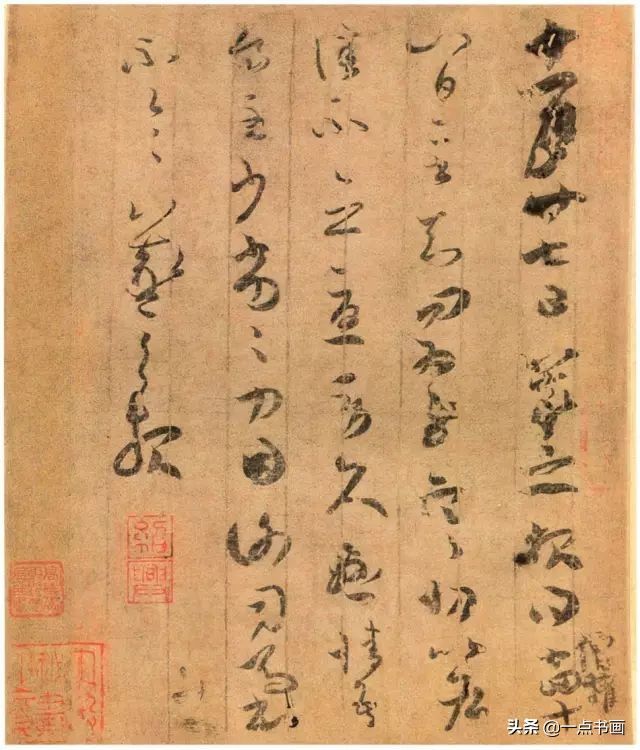 十一月廿七日羲之報得十四十
八日二書知問為慰寒切比各
佳不念憂勞久懸情吾
食至少劣劣力因謝司馬書
不一一羲之報
僧權
紹興
头条 @一点书画